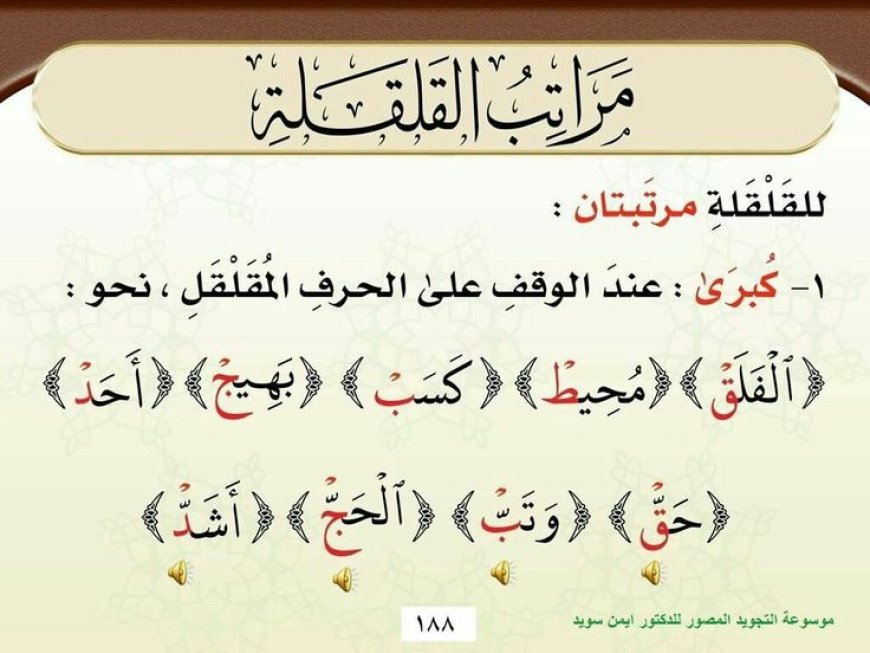 مَرَاتِبُ القَلقَلَةِ
للقَلْقَلةِ مرتَبتان :
١- كُبرَىٰ : عندَ الوقفِ علىٰ الحرفِ المُقَلْقَلِ ، نحو :
﴿ٱلْفَلَقْ﴾ ﴿مُحِيطْ﴾ ﴿كَسَبْ﴾ ﴿بَهِيجْ﴾ ﴿أَحَدْ﴾
﴿حَقّْ﴾ ﴿وَتَبّْ﴾ ﴿ٱلْحَجّْ﴾ ﴿أَشَدّْ﴾
موسوعة التجويد المصور للدكتور ايمن سويد
١٨٨